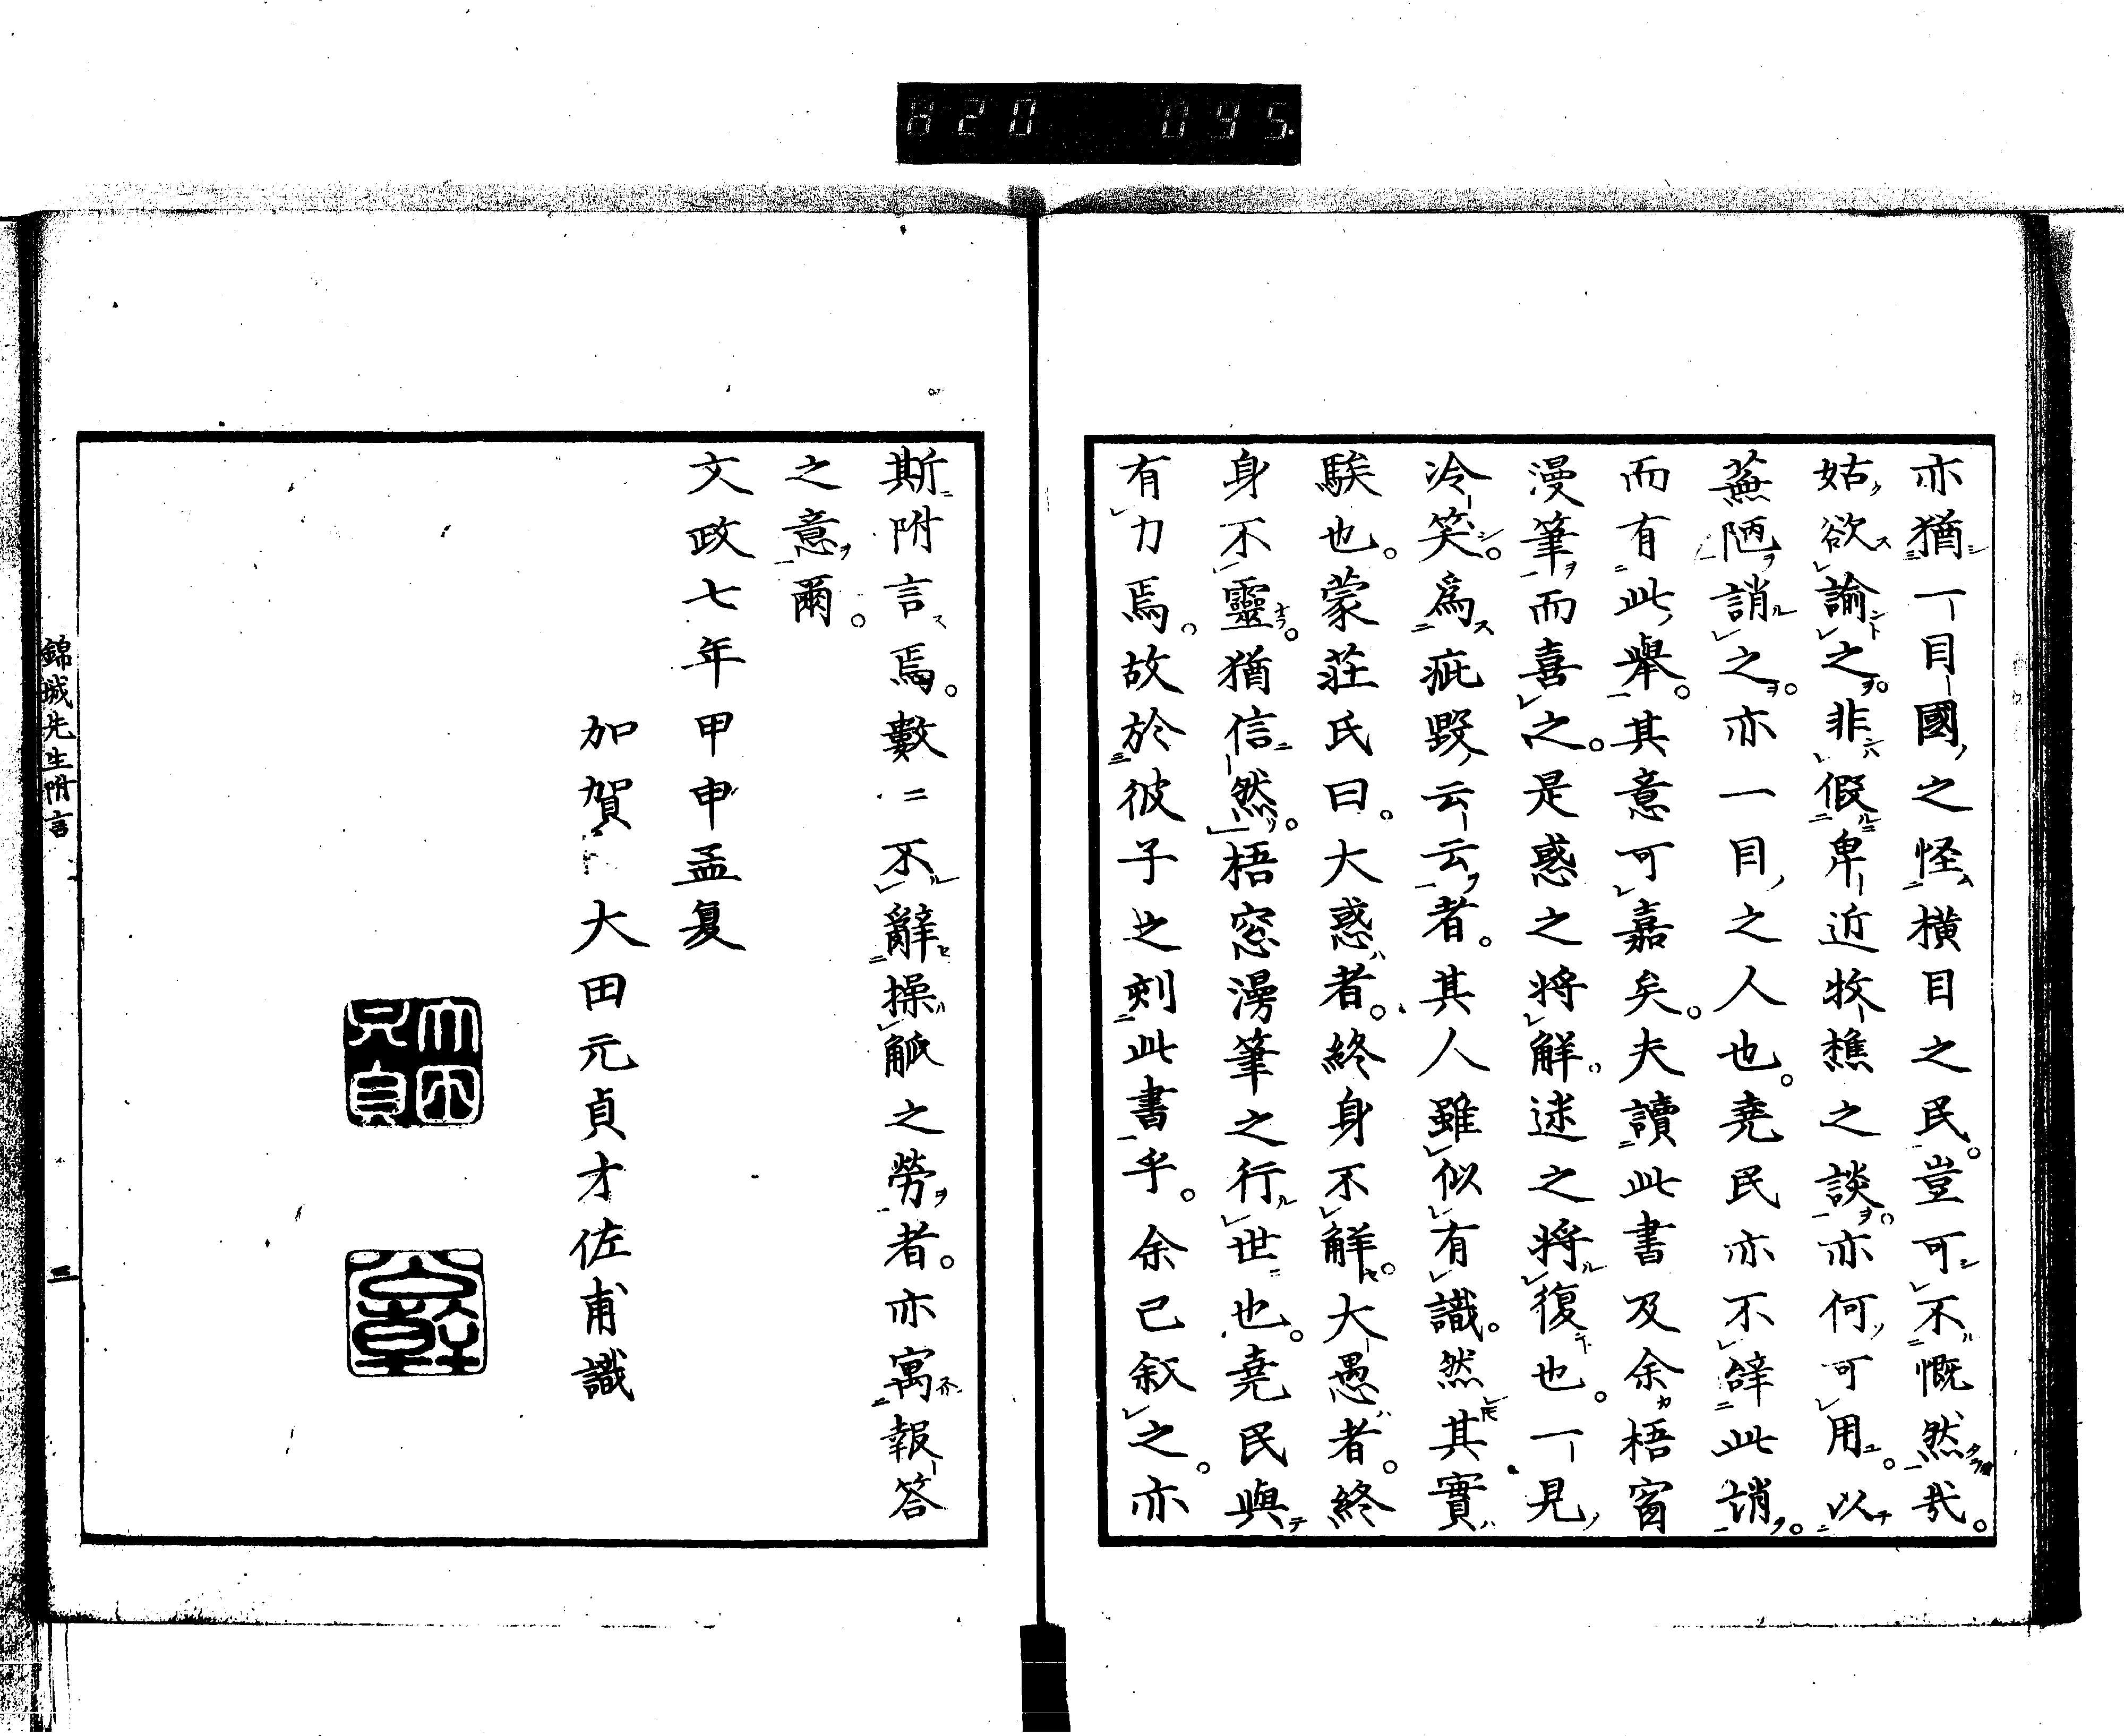 820 095.
亦猶一目國之怪橫目之民。豈可不慨然哉。
姑欲諭之。非假卑近牧樵之談。亦何可用。以
蕪陋誚之。亦一目之人也。堯民亦不辭此誚。
而有此舉。其意可嘉矣。夫讀此書及余梧窗
漫筆而喜之。是惑之將解。迷之將復也。一見
冷笑。爲疵毀云云者。其人雖似有識。然其實
騃也。蒙莊氏曰。大惑者。終身不解。大愚者。終
身不靈。猶信然。梧窓漫筆之行世也。堯民與
有力焉。故於彼子之刻此書乎。余已叙之。亦
斯附言焉。數〻不辭操觚之勞者。亦寓報答
之意爾。
文政七年甲申孟夏
加賀 大田元貞才佐甫識
大田元貞
公幹
錦城先生附言 三